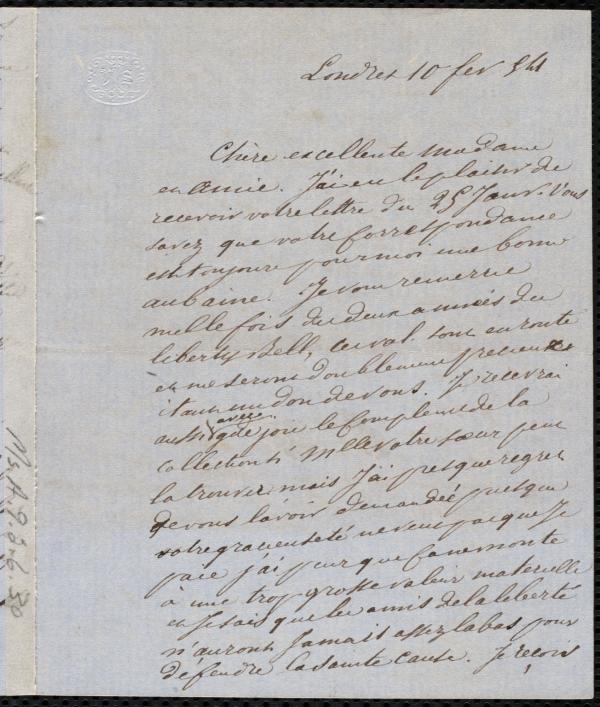 Londres 10 fev 54
Chère excellente Madame
en Amie. J'ai eu le plaisir de
recevoir votre lettre du 25 Janv. Vous
savez que votre Correspondance
est toujours pour moi une bonne
aubaine. Je vous remercie
mille fois des deux années du
liberty Bell, ces vol. sont en route
et me seront doublement précieux
étant un don de vous. Je recevrai
aussi avec joie le Complement de la
collection si Mlle votre sœur peut
la trouver mais j'ai presque regret
de vous l'avoir demandée puisque
votre gracieuseté ne veut pas que je
paie j'ai peur que ça ne monte
à une trop grosse valeur materielle
et je sais que les amis de la liberté
n'auront jamais assez labas pour
défendre la sainte cause. Je reçois
Ms.A.9.2.6.30